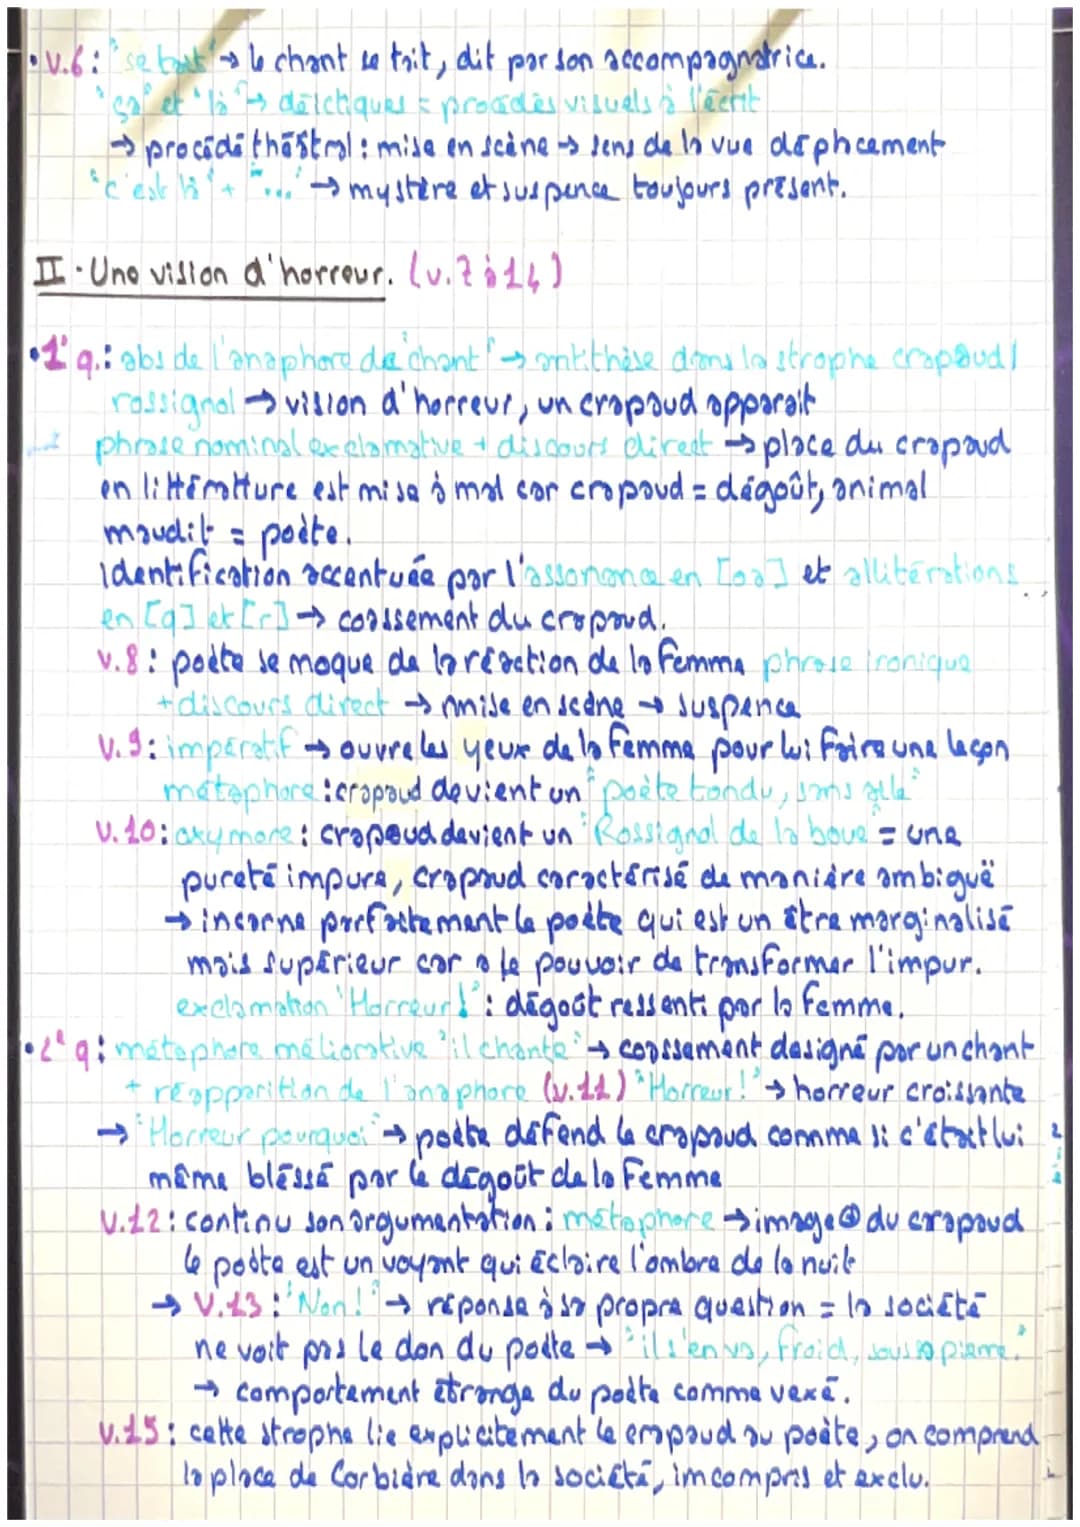 • V.6 : "se tait" → le chant se tait, dit par son accompagnatrice.
"ça" et "là" → déictiques = procédés visuels à l'écrit
→ procédé théâtral : mise en scène → sens de la vue déplacement
"c'est là" + "..." → mystère et suspence toujours présent.
II - Une vision d'horreur. (v.7 à 14)
• 1er q. : abs de l'anaphore de "chant" → antithèse dans la strophe crapaud/
rossignol → vision d'horreur, un crapaud apparaît
phrase nominal exclamative + discours direct → place du crapaud
en littératture est mise à mal car crapaud = dégoût, animal
maudit = poète.
identification accentuée par l'assonance en [oa] et allitérations
en [q] et [r] → coassement du crapaud.
V.8 : poète se moque de la réaction de la femme phrase ironique
+ discours direct → mise en scène → suspence
V.9 : impératif → ouvre les yeux de la femme pour lui faire une leçon
métaphore : crapaud devient un "poète tondu, sans aile"
V.10 : oxymore : crapaud devient un "Rossignol de la boue" = une
pureté impure, crapaud caractérisé de manière ambiguë
→ incarne parfaitement le poète qui est un être marginalisé
mais supérieur car a le pouvoir de transformer l'impur.
exclamation "Horreur !" : dégoût ressenti par la femme.
• 2e q : métaphore méliorative "il chante" → coassement designé par un chant
+ réapparition de l'anaphore (v.11) "Horreur !" → horreur croissante
→ "Horreur pourquoi" → poète défend le crapaud comme si c'était lui
même bléssé par le dégoût de la femme
V.12 : continu son argumentation : métaphore → image ⊕ du crapaud
le poète est un voyant qui éclaire l'ombre de la nuit
→ V.13 : "Non !" → réponse à sa propre question = la société
ne voit pas le don du poète → "il s'en va, froid, sous sa pierre."
→ comportement étrange du poète comme vexé.
V.15 : cette strophe lie explicitement le crapaud au poète, on comprend
la place de Corbière dans la société, imcompris et exclu.